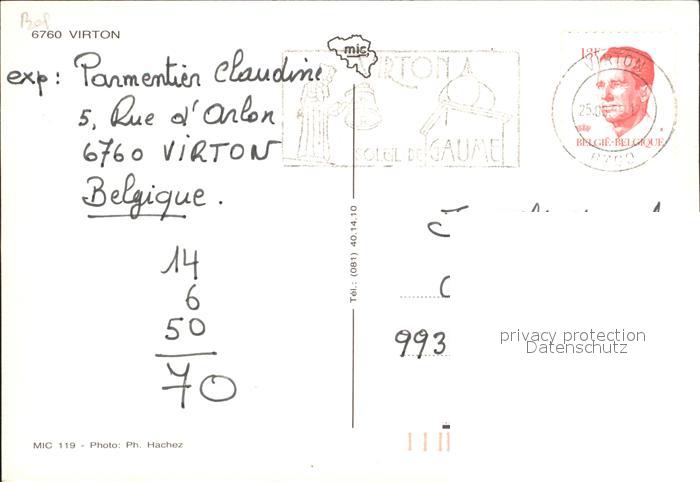 6760 VIRTON
exp: Parmentier Claudine
5, Rue d'Arlon
6760 VIRTON
Belgique.
14
6
50
70
MIC 119 - Photo: Ph. Hachez
mic
Tél.: (081) 40.14.10
VIRTON
SOLEIL DE GAUME
13F
VIRTON
BELGIË-BELGIQUE
993
privacy protection
Datenschutz